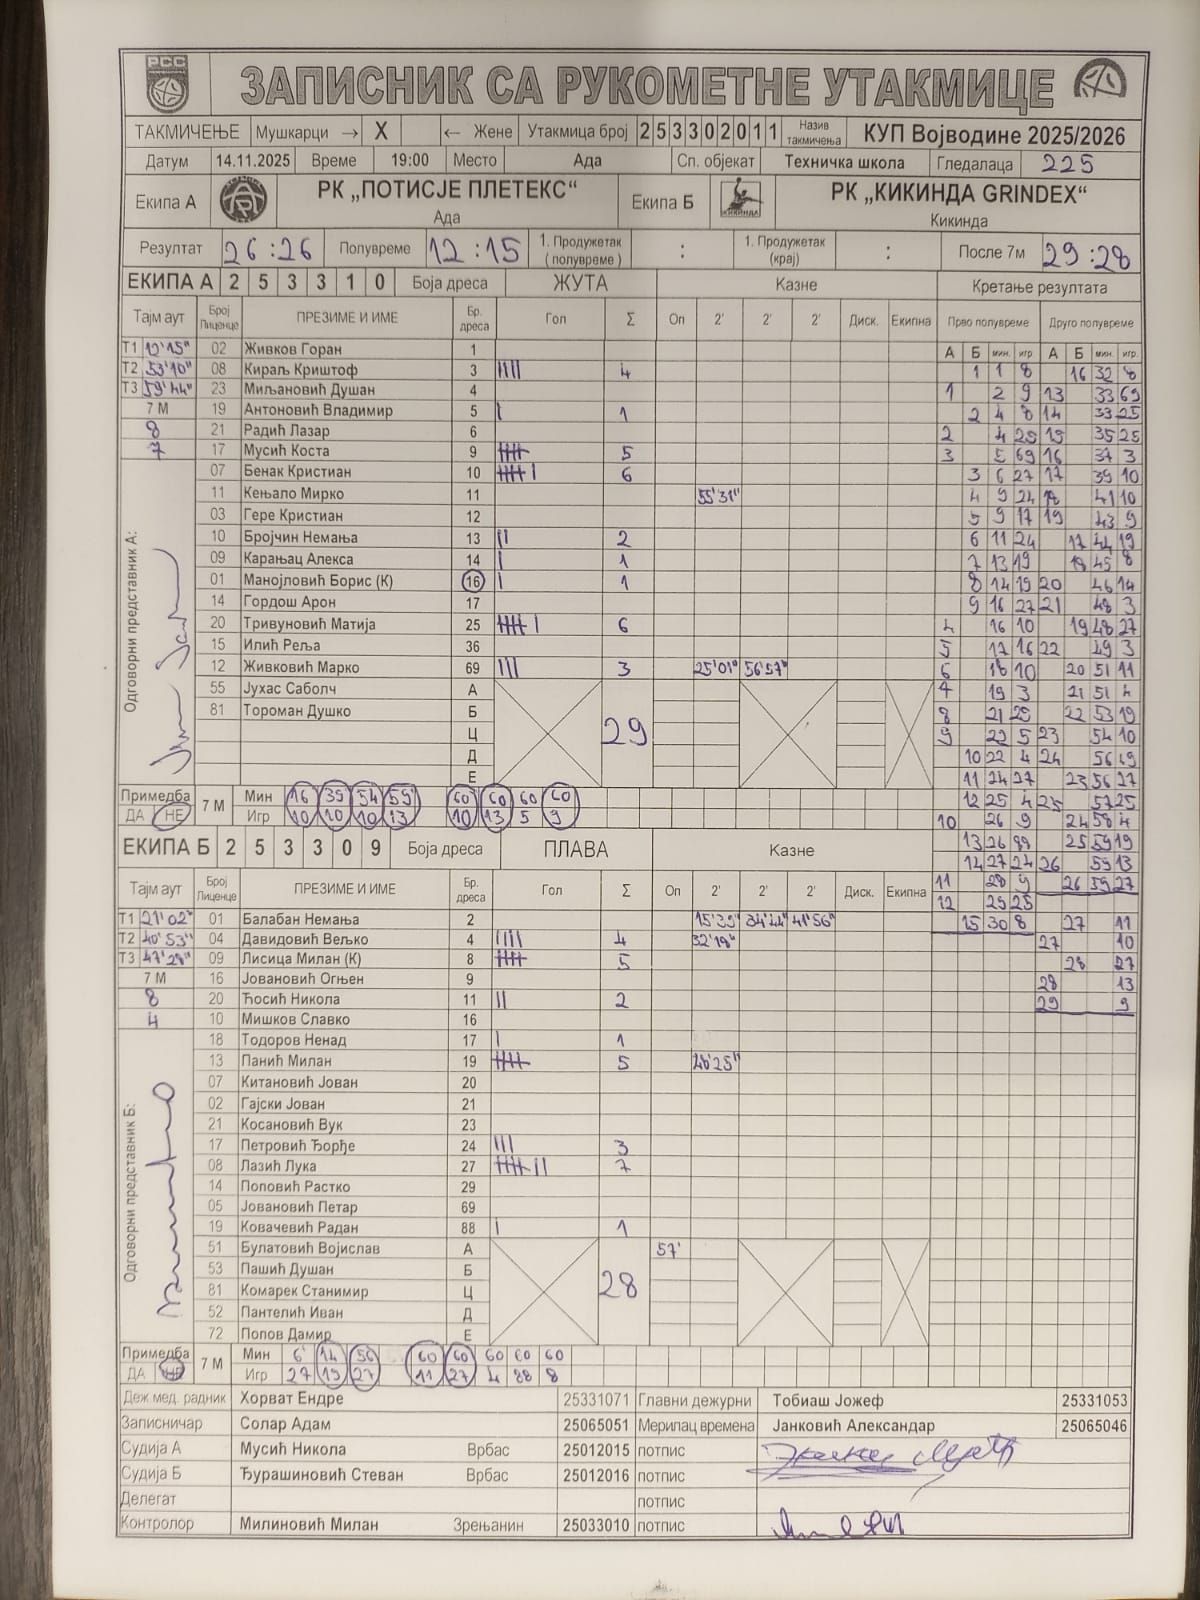 РСС
ЗАПИСНИК СА РУКОМЕТНЕ УТАКМИЦЕ
ТАКМИЧЕЊЕ Мушкарци → X ← Жене Утакмица број 2 5 3 3 0 2 0 1 1 Назив такмичења КУП Војводине 2025/2026
Датум 14.11.2025 Време 19:00 Место Ада Сп. објекат Техничка школа Гледалаца 225
Екипа А РК „ПОТИСЈЕ ПЛЕТЕКС“ Ада Екипа Б РК „КИКИНДА GRINDEX“ Кикинда
Резултат 26:26 Полувреме 12:15 1. Продужетак (полувреме) : 1. Продужетак (крај) : После 7м 29:28
ЕКИПА А 2 5 3 3 1 0 Боја дреса ЖУТА Казне Кретање резултата
Тајм аут Број Лиценце ПРЕЗИМЕ И ИМЕ Бр. дреса Гол Σ Оп 2' 2' 2' Диск. Екипна Прво полувреме Друго полувреме
А Б мин. игр А Б мин. игр.
Т1 02 Живков Горан 1
Т2 53'10" 08 Кираљ Криштоф 3 4
Т3 59'44" 23 Миљановић Душан 4
7 М 19 Антоновић Владимир 5 1
8 21 Радић Лазар 6
7 17 Мусић Коста 9 5
07 Бенак Кристиан 10 6
11 Кењало Мирко 11 55'31"
03 Гере Кристиан 12
10 Бројчин Немања 13 2
09 Карањац Алекса 14 1
01 Манојловић Борис (К) 16 1
14 Гордош Арон 17
20 Тривуновић Матија 25 6
15 Илић Реља 36
12 Живковић Марко 69 3 25'01" 56'57"
55 Јухас Саболч А
81 Тороман Душко Б
29
Ц
Д
Е
Одговорни представник А:
Примедба ДА НЕ 7 М
Мин 16 39 54 59 60 60 60 60
Игр 10 10 10 13 10 13 5 9
ЕКИПА Б 2 5 3 3 0 9 Боја дреса ПЛАВА Казне
Тајм аут Број Лиценце ПРЕЗИМЕ И ИМЕ Бр. дреса Гол Σ Оп 2' 2' 2' Диск. Екипна
Т1 21'02" 01 Балабан Немања 2 15'39" 34'44" 41'56"
Т2 40'53" 04 Давидовић Вељко 4 4 32'18"
Т3 47'28" 09 Лисица Милан (К) 8 5
7 М 16 Јовановић Огњен 9
8 20 Ћосић Никола 11 2
4 10 Мишков Славко 16
18 Тодоров Ненад 17 1
13 Панић Милан 19 5 25"
07 Китановић Јован 20
02 Гајски Јован 21
21 Косановић Вук 23
17 Петровић Ђорђе 24 3
08 Лазић Лука 27 7
14 Поповић Растко 29
05 Јовановић Петар 69
19 Ковачевић Радан 88 1
51 Булатовић Војислав А 57'
53 Пашић Душан Б
81 Комарек Станимир Ц 28
52 Пантелић Иван Д
72 Попов Дамир Е
Одговорни представник Б:
Примедба ДА НЕ 7 М
Мин 6' 14 56 60 60 60 60 60
Игр 27 19 27 11 27 4 88 8
1 1 8 16 32 8
1 2 9 13 33 69
2 4 8 14 33 25
2 4 25 15 35 25
3 5 69 16 37 3
3 6 27 17 39 10
4 9 24 18 41 10
5 9 17 19 43 9
6 11 24 17 44 19
7 13 19 18 45 8
8 14 19 20 46 14
9 16 27 21 48 3
4 16 10 19 48 27
5 17 16 22 49 3
6 18 10 20 51 11
7 19 3 21 51 4
8 21 25 22 53 19
9 22 5 23 54 10
10 22 4 24 56 69
11 24 27 23 56 27
12 25 4 25 57 25
10 26 9 24 58 4
13 26 88 25 59 19
14 27 24 26 59 13
11 28 9 26 59 27
12 29 25
15 30 8 27 11
27 10
28 27
28 13
29 9
Деж.мед. радник Хорват Ендре 25331071 Главни дежурни Тобиаш Јожеф 25331053
Записничар Солар Адам 25065051 Мерилац времена Јанковић Александар 25065046
Судија А Мусић Никола Врбас 25012015 потпис
Судија Б Ђурашиновић Стеван Врбас 25012016 потпис
Делегат потпис
Контролор Милиновић Милан Зрењанин 25033010 потпис